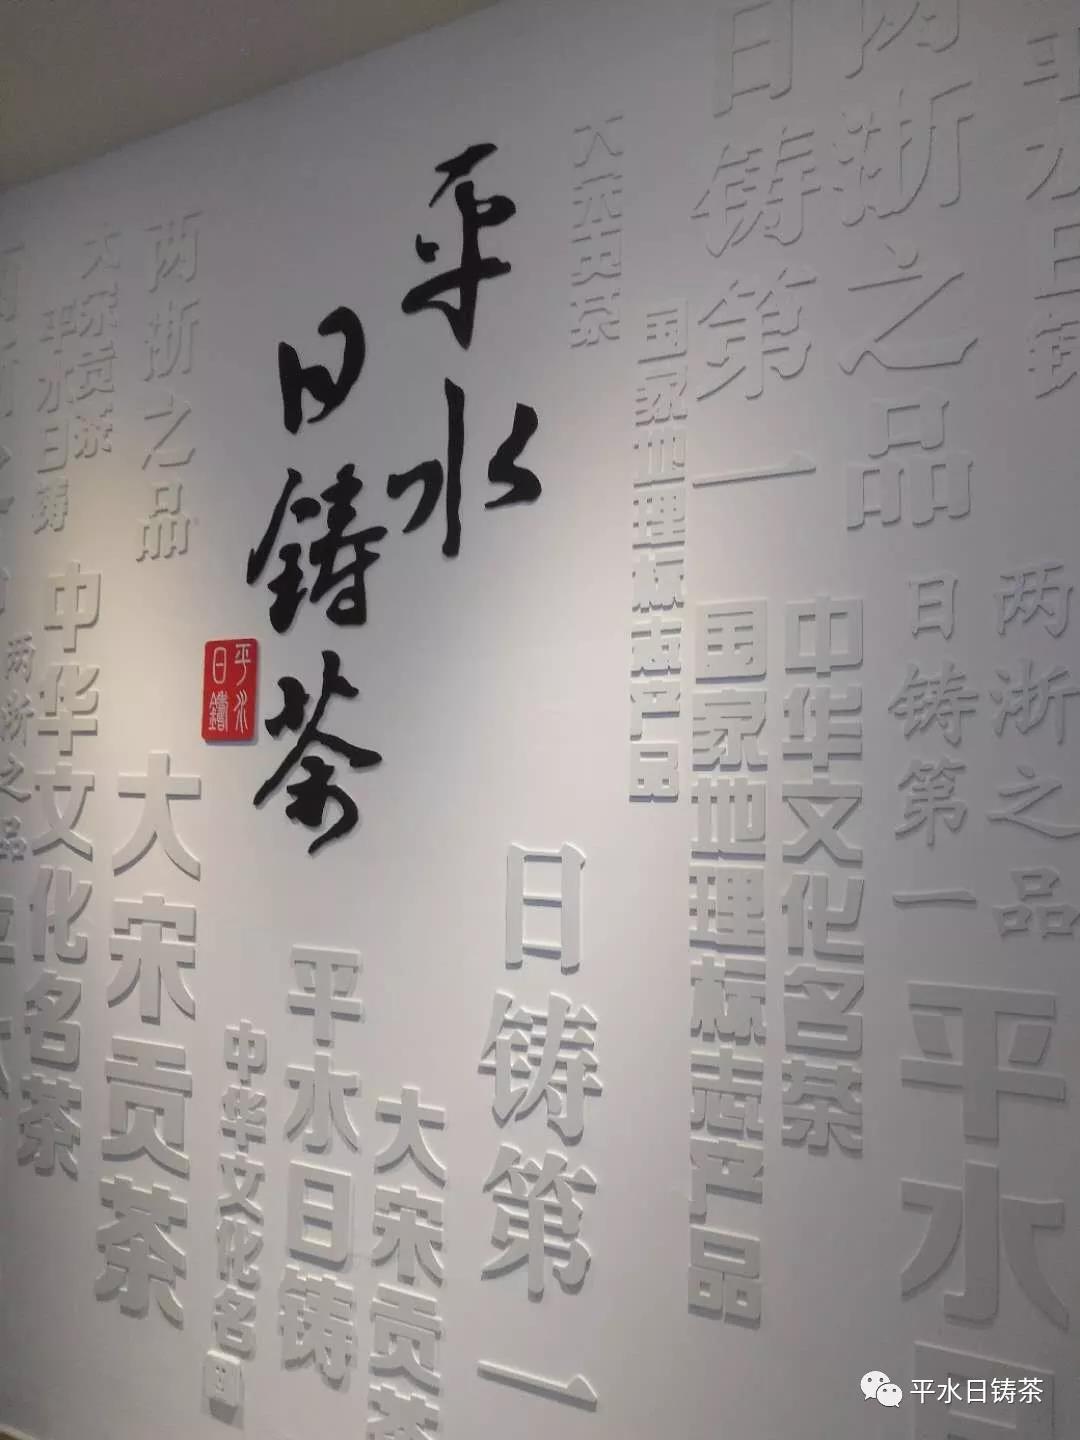 平水
日铸茶
平水
日鑄
两浙之品
大宋贡茶
平水日铸
中华文化名茶
两浙之品
大宋贡茶
中华文化名
平水日铸
大宋贡茶
日铸第一
大宋贡茶
国家地理标志产品
日铸第一
两浙之品
平水日铸
国家地理标志产品
中华文化名茶
日铸第一
两浙之品
平水日
平水日铸茶